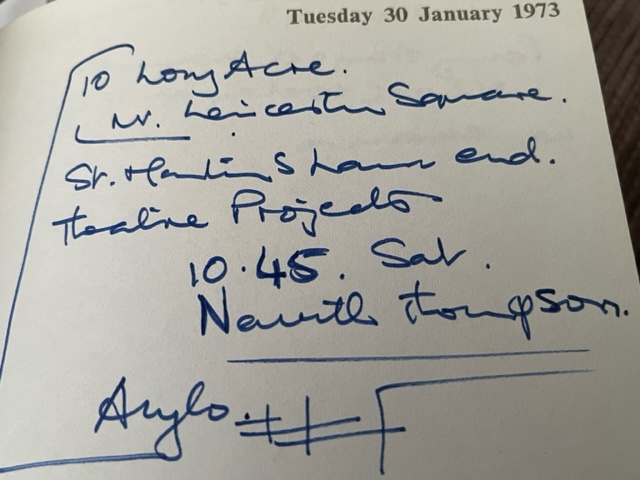 Tuesday 30 January 1973
10 Long Acre.
Nr. Leicester Square.
St. Martins Lane end.
Theatre Projects
10.45. Sat.
Thompson.
Anglo